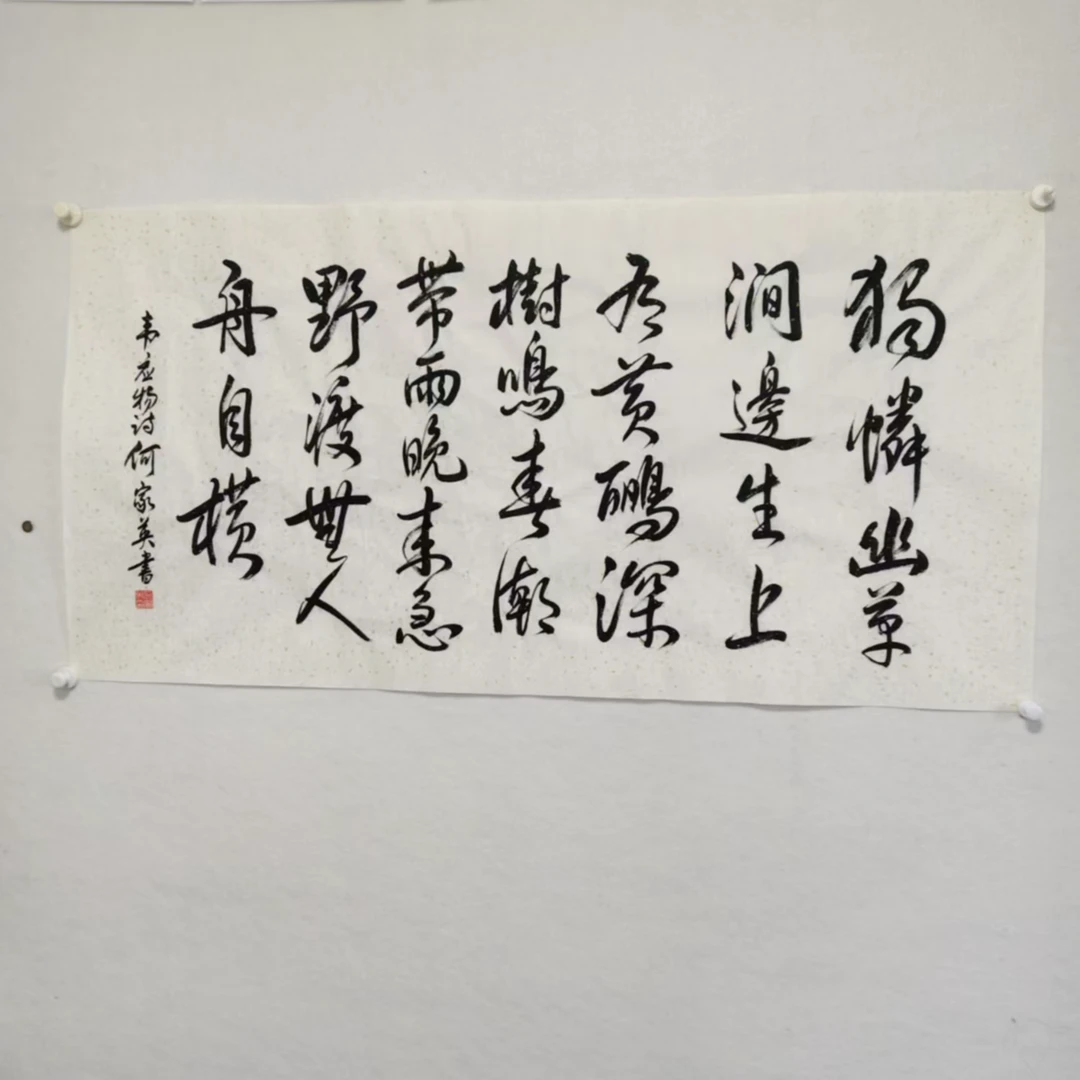 獨憐幽草
澗邊生上
有黃鸝深
樹鳴春潮
帶雨晚来急
野渡無人
舟自横
韦应物诗何家英書